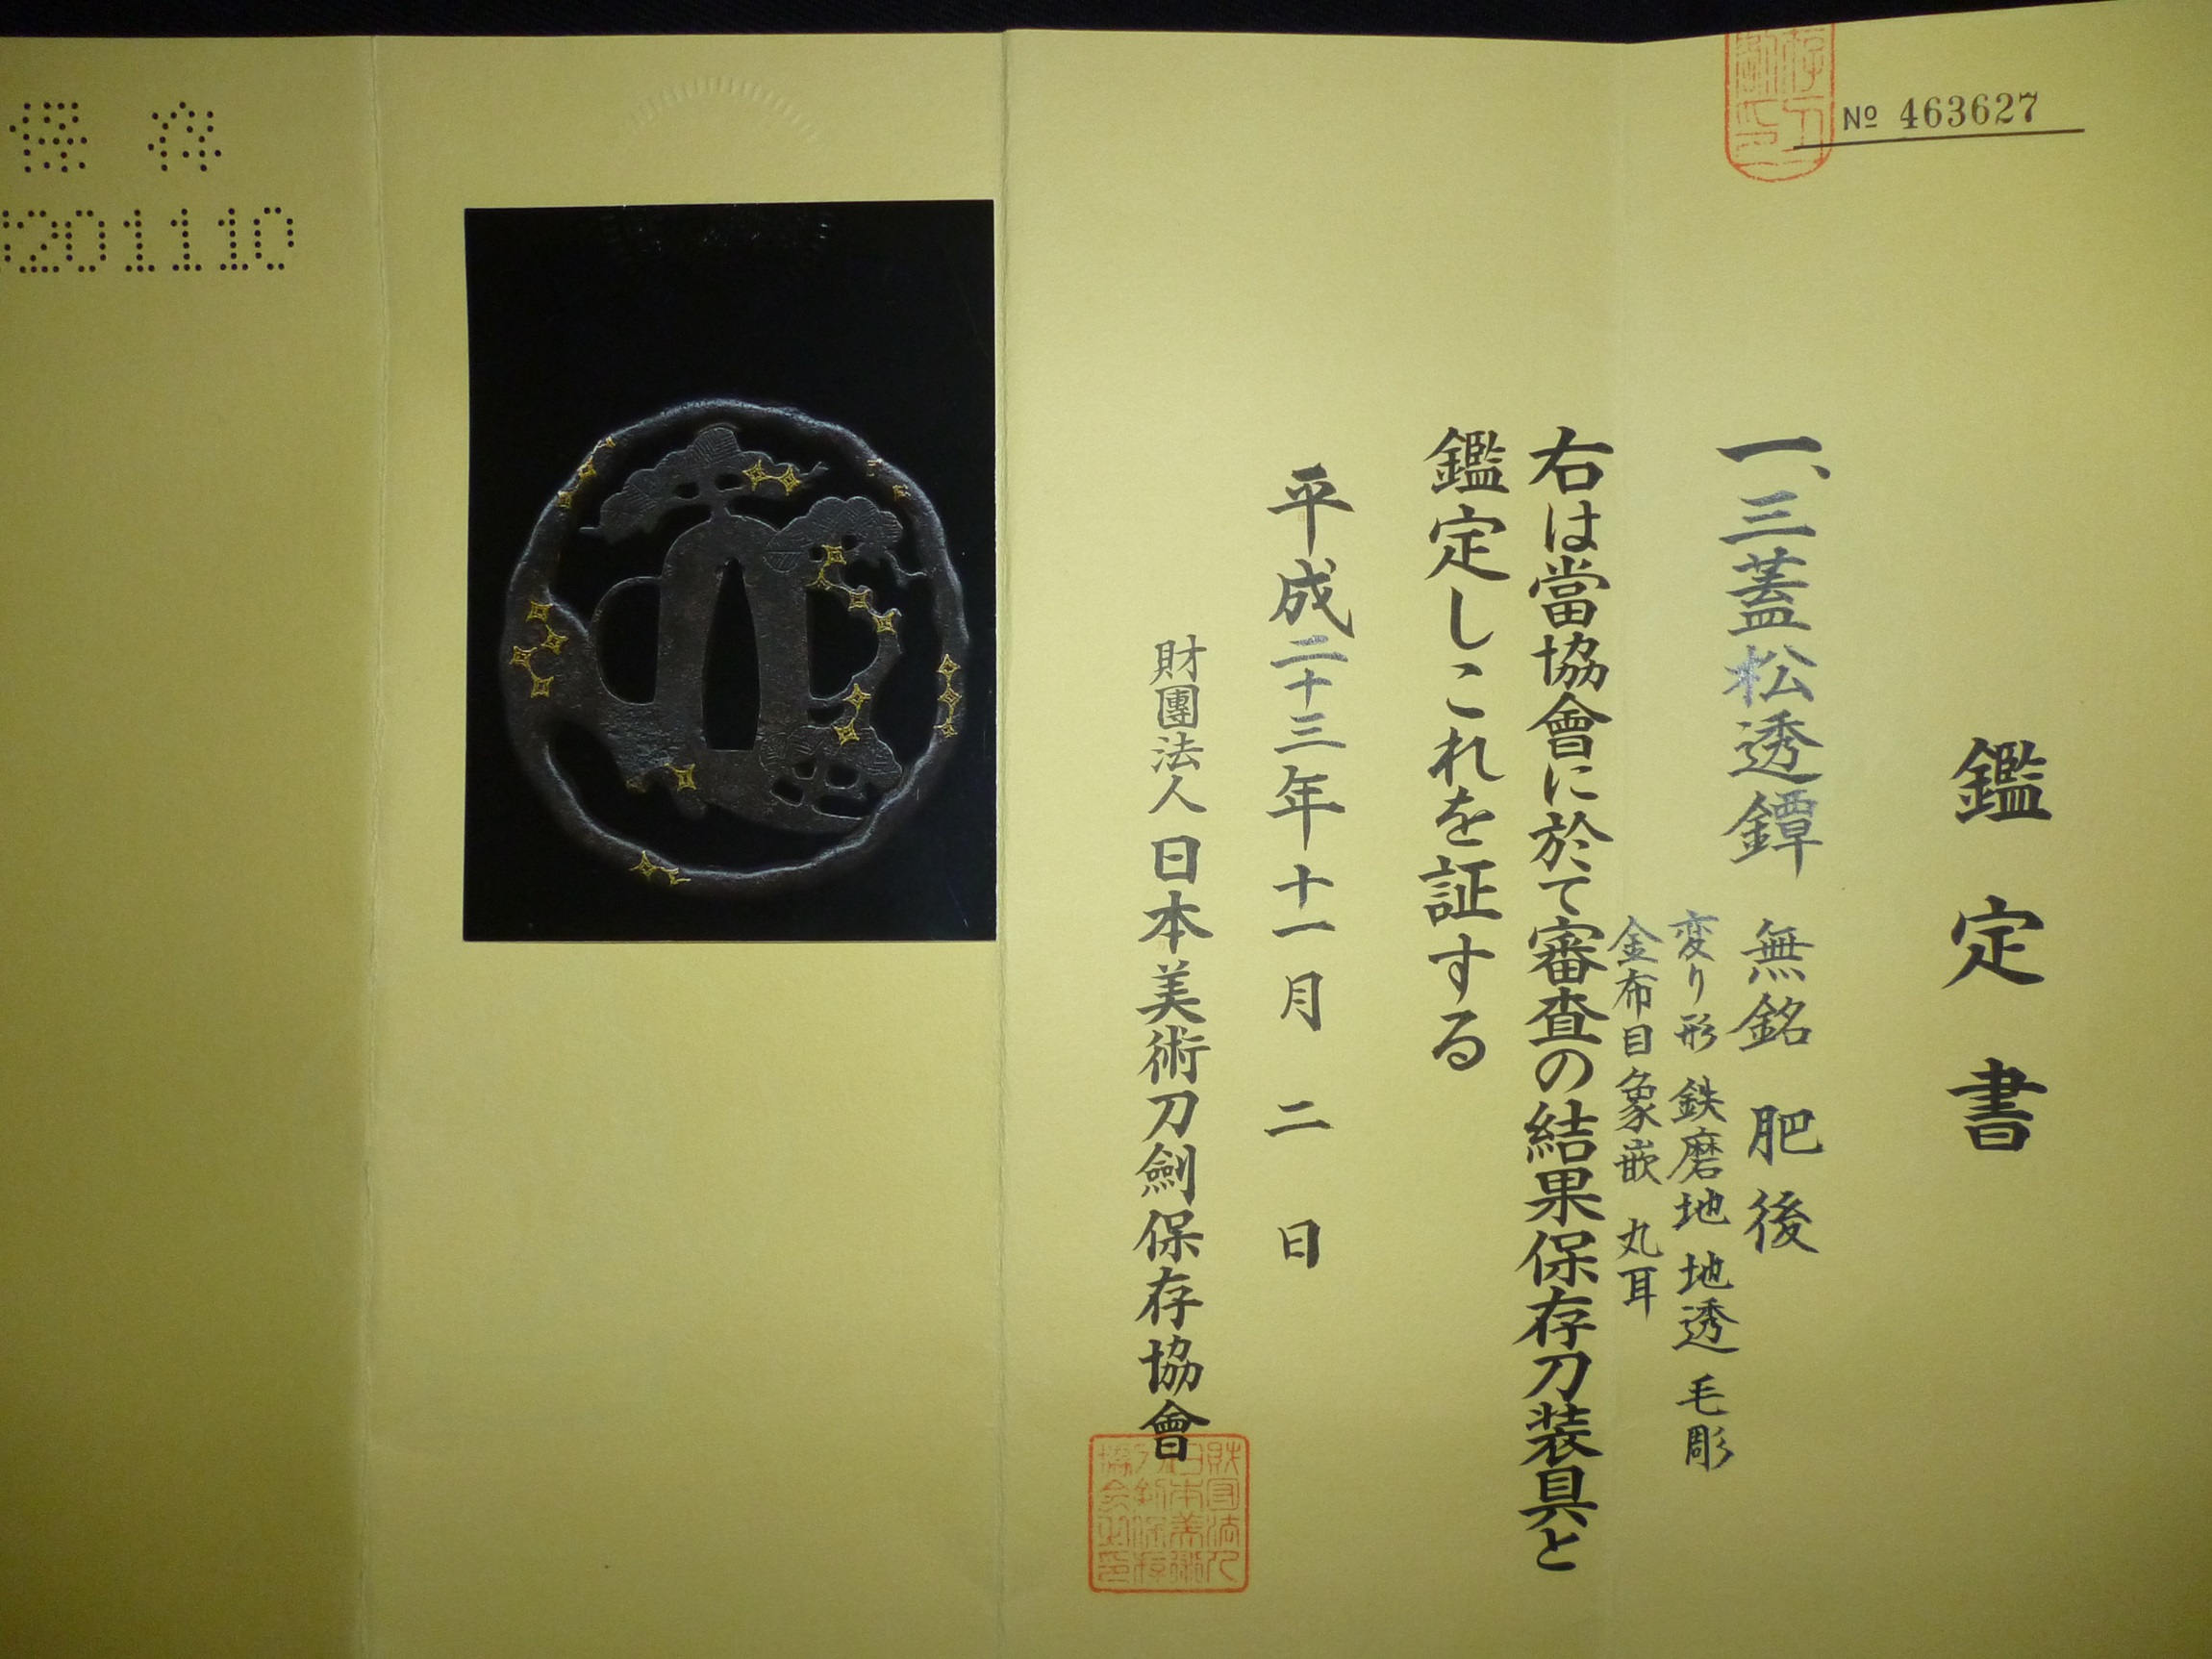 № 463627
鑑定書
一、三蓋松透鐔 無銘 肥後
変り形 鉄磨地 地透 毛彫
金布目象嵌 丸耳
右は當協會に於て審査の結果保存刀装具と
鑑定しこれを証する
平成二十三年十一月二日
財團法人 日本美術刀劍保存協會
保存
201110